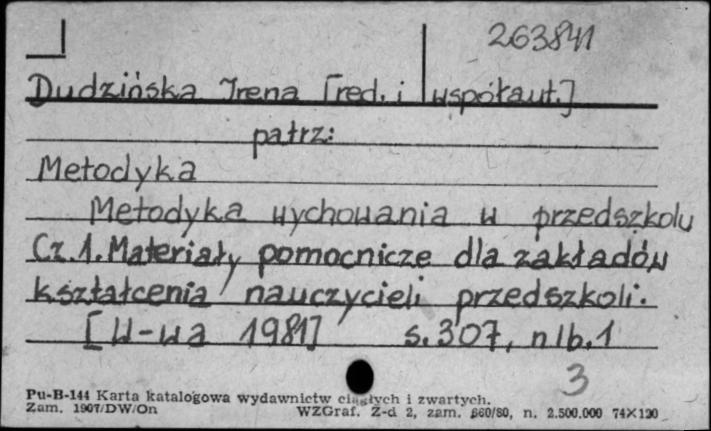 263841
Dudzińska Irena [red. i współaut.]
patrz:
Metodyka
Metodyka wychowania w przedszkolu
Cz. 1. Materiały pomocnicze dla zakładów
kształcenia nauczycieli przedszkoli.
[W-wa 1981] s. 307, nlb. 1
3
Pu-B-144 Karta katalogowa wydawnictw ciągłych i zwartych.
Zam. 1907/DW/On WZGraf. Z-d 2, zam. 660/80, n. 2.500.000 74×120